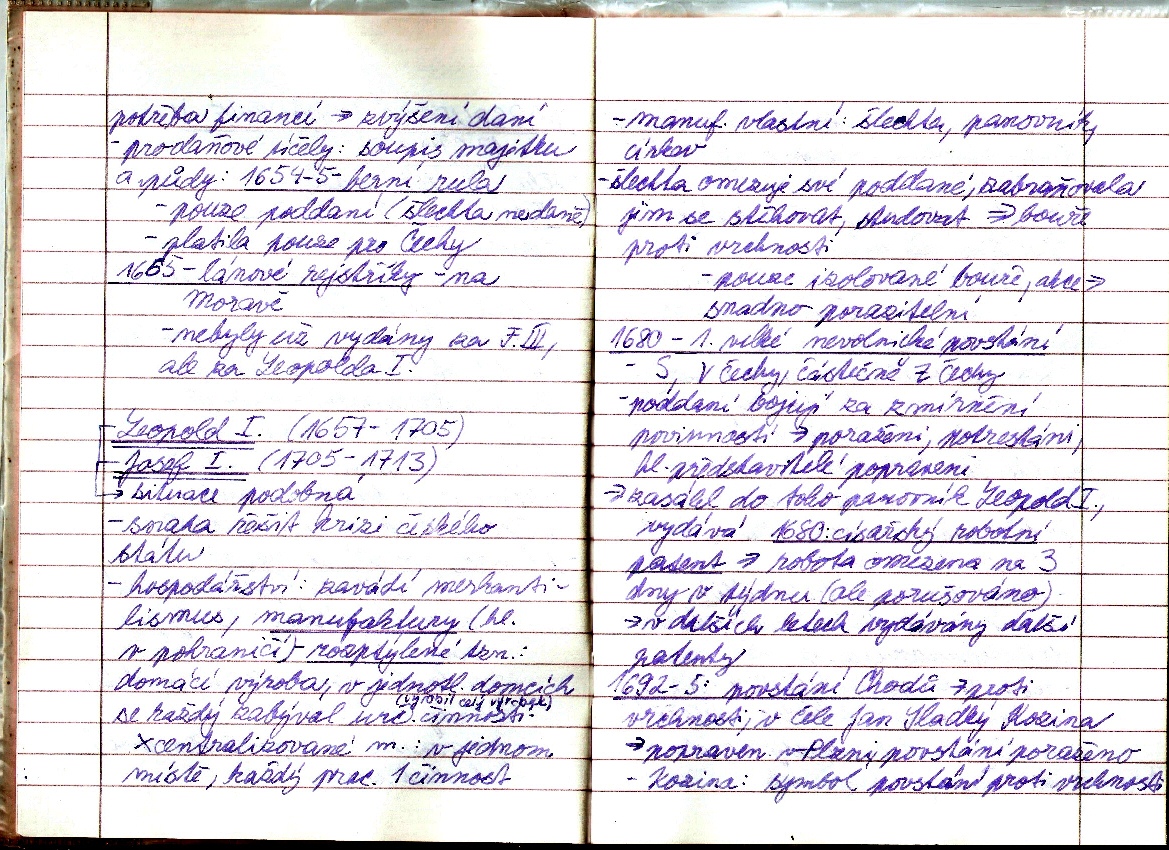 potřeba financí → zvýšení daní
- prodaňové účely: soupis majetku
a půdy: 1654-5 - berní rula
- pouze poddaní (šlechta nedaně)
- platila pouze pro Čechy
1655 - lánové rejstříky - na
Moravě
- nebyly už vydány za F. III,
ale za Leopolda I.
Leopold I. (1657 - 1705)
- Josef I. (1705 - 1713)
→ situace podobná
- snaha řešit krizi českého
státu
- hospodářství: zavádí merkanti-
lismus, manufaktury (hl.
v pohraničí) - rozptýlené tzn.:
domácí výroba, v jednotl. domcích
(vyrobil celý výrobek)
se každý zabýval urč. činností
× centralizované m.: v jednom
místě, každý prac. 1 činnost
- manuf. vlastní: šlechta, panovník,
církev
- šlechta omezuje své poddané, zabraňovala
jim se stěhovat, studovat ⇒ bouře
proti vrchnosti
- pouze izolované bouře, akce ⇒
snadno porazitelní
1680 - 1. velké nevolnické povstání
- S, V Čechy, částečně Z Čechy
- poddaní bojují za zmírnění
povinností → poraženi, potrestáni,
hl. představitelé popraveni
→ zasáhl do toho panovník Leopold I.,
vydává 1680: císařský robotní
patent → robota omezena na 3
dny v týdnu (ale porušováno)
→ v dalších letech vydávány další
patenty
1692-5: povstání Chodů → proti
vrchnosti, v čele Jan Sladký Kozina
→ popraven v Plzni, povstání poraženo
- Kozina: symbol povstání proti vrchnosti